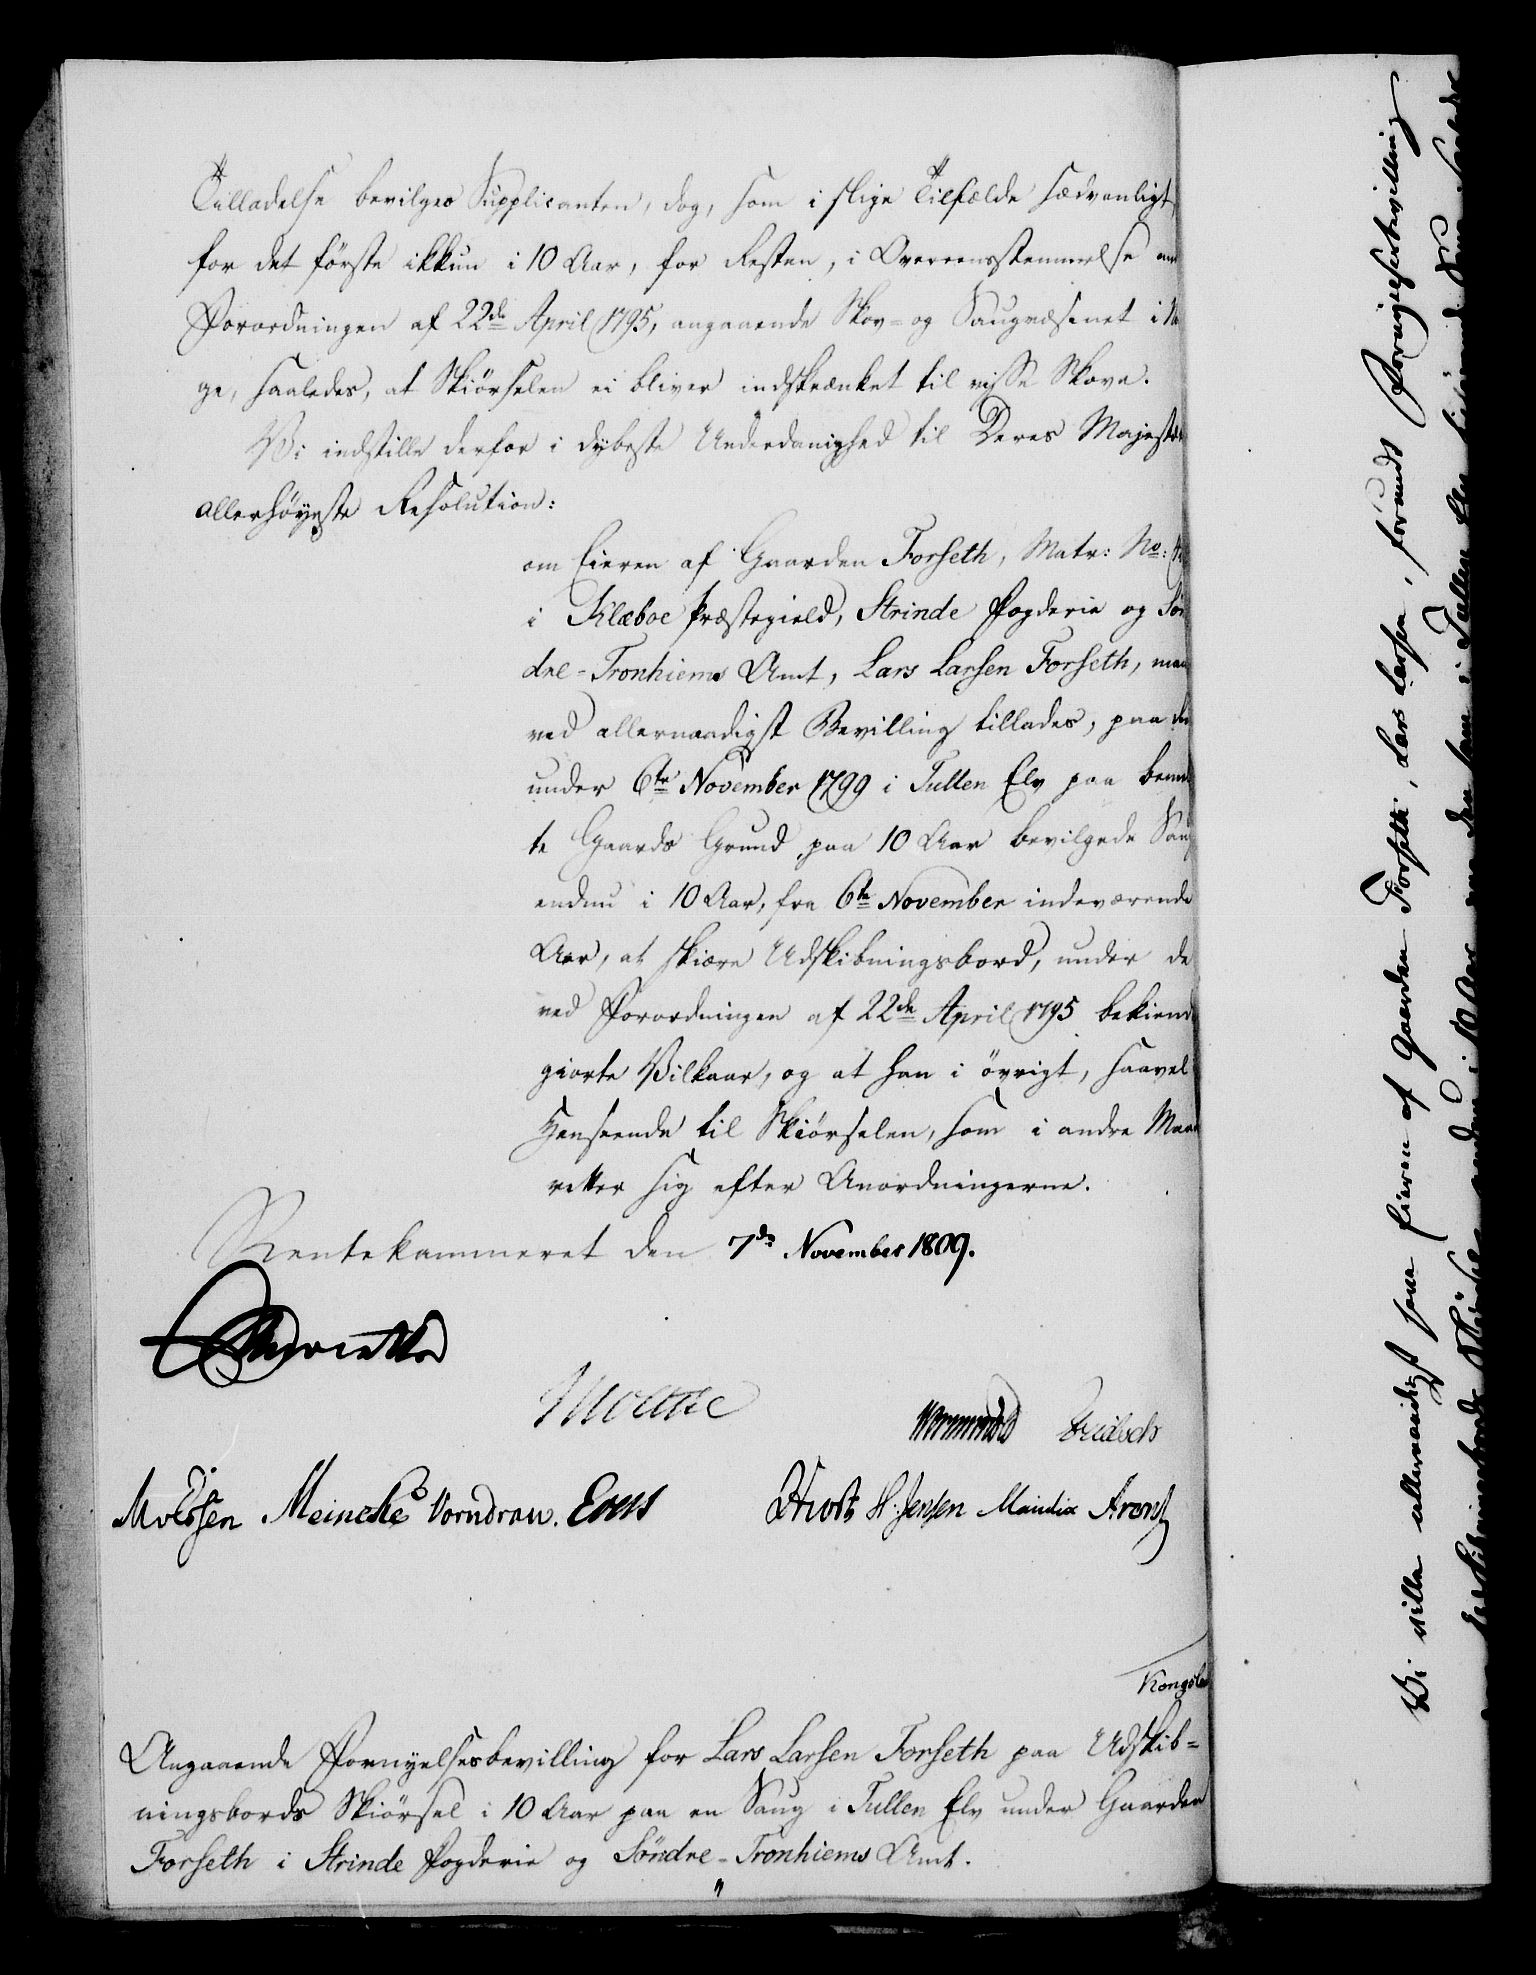 Tilladelse bevilges Supplicanten, dog, som i slige Tilfælde sædvanligt
for det förste ikkun i 10 Aar, for Resten, i Overeensstemmelse med
Forordningen af 22de April 1795, angaaende Skov- og Saugvæsenet i No
ge, saaledes, at Skiörselen ei bliver indskrænket til visse Skove.
Vi indstille derfor i dybeste Underdanighed til Deres Majestæts
allerhöyeste Resolution:
om Eieren af Gaarden Forseth, Matr: No:
i Klæboe Præstegield, Strinde Fogderie og Sön
dre-Tronhiems Amt, Lars Larsen Forseth, maae
ved allernaadigst Bevilling tillades, paa den
under 6te November 1799 i Tullen Elv paa bemel
te Gaards Grund paa 10 Aar bevilgede Saug
endnu i 10 Aar, fra 6te November indeværende
Aar, at skiære Udskibningsbord, under de
ved Forordningen af 22de April 1795 bekiendt
giorte Vilkaar, og at han i övrigt, saavel
Henseende til Skiörselen, som i andre Maader
retter sig efter Anordningerne.
Rentekammeret den 7de November 1809.
Moltke
Wormskiold
Meincke Vorndran.
H. Jensen
Kongsb
Angaaende Fornyelsesbevilling for Lars Larsen Forseth paa Udskib-
ningsbords Skiörsel i 10 Aar paa en Saug i Tullen Elv under Gaarden
Forseth i Strinde Fogderie og Söndre-Tronhiems Amt.
Vi ville allernaadigst som Eieren af Gaarden Forseth, Lars Larsen, forundt Fornyelsesbevilling
endnu i 10 Aar paa den ham i Tullen Elv